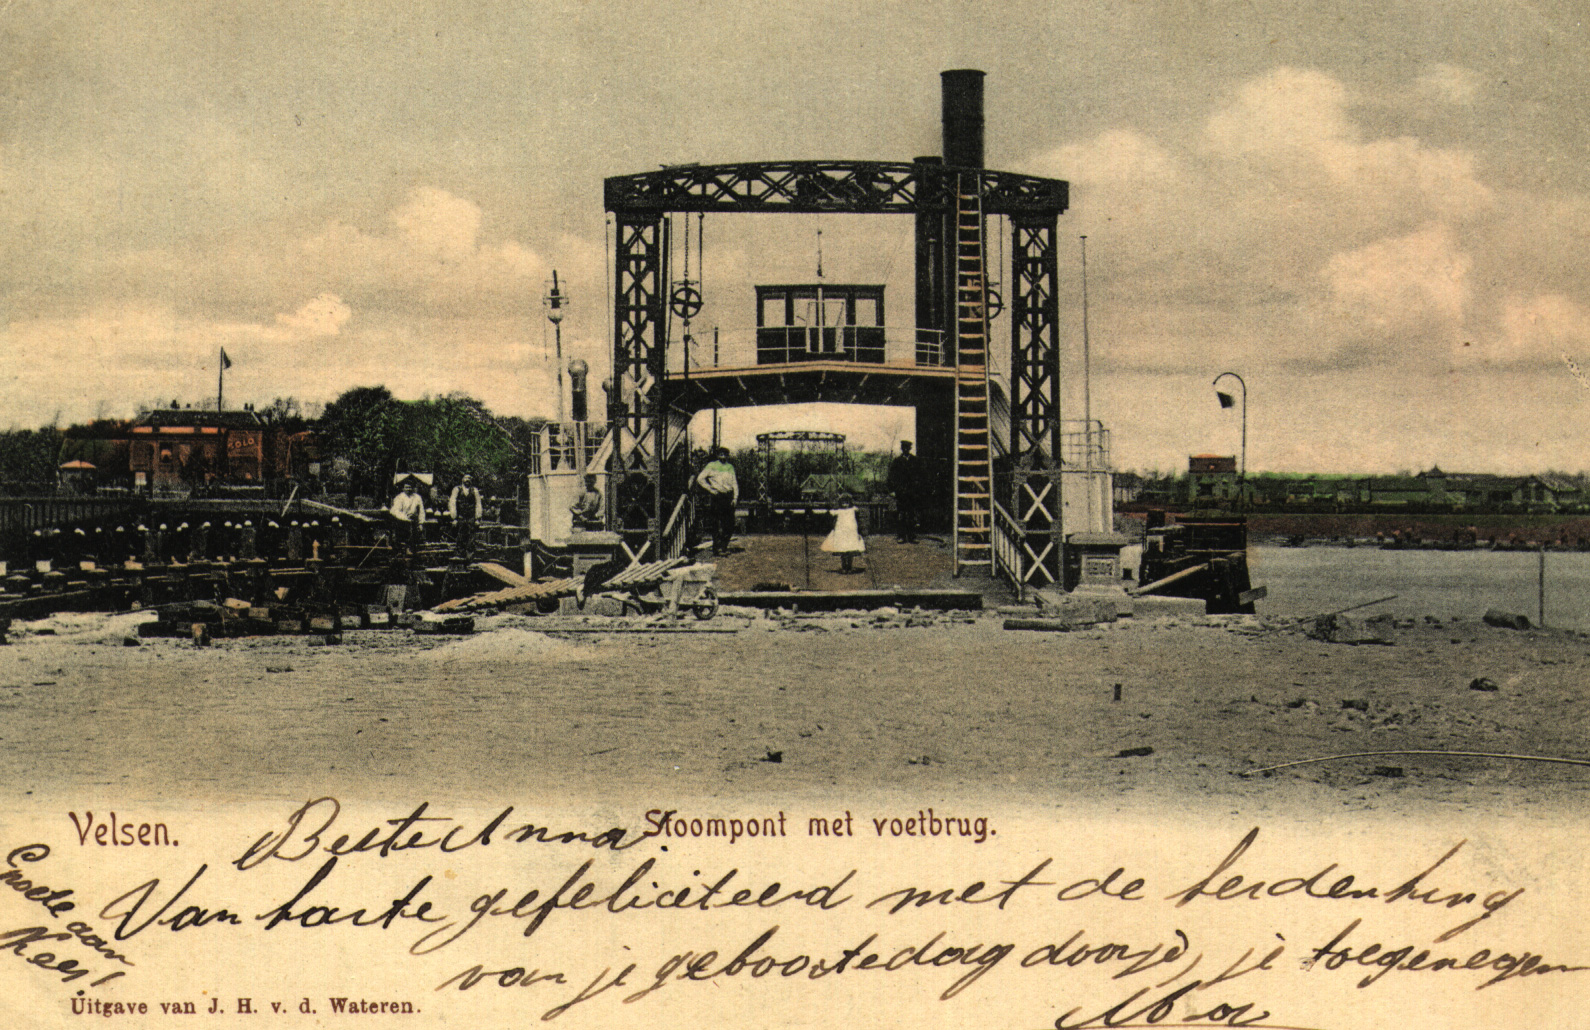 Velsen.
Stoompont met voetbrug.
Beste Anna!
Van harte gefeliciteerd met de herdenking
van je geboortedag door je, je toegenegen
Groete aan
Kees!
Uitgave van J. H. v. d. Wateren.